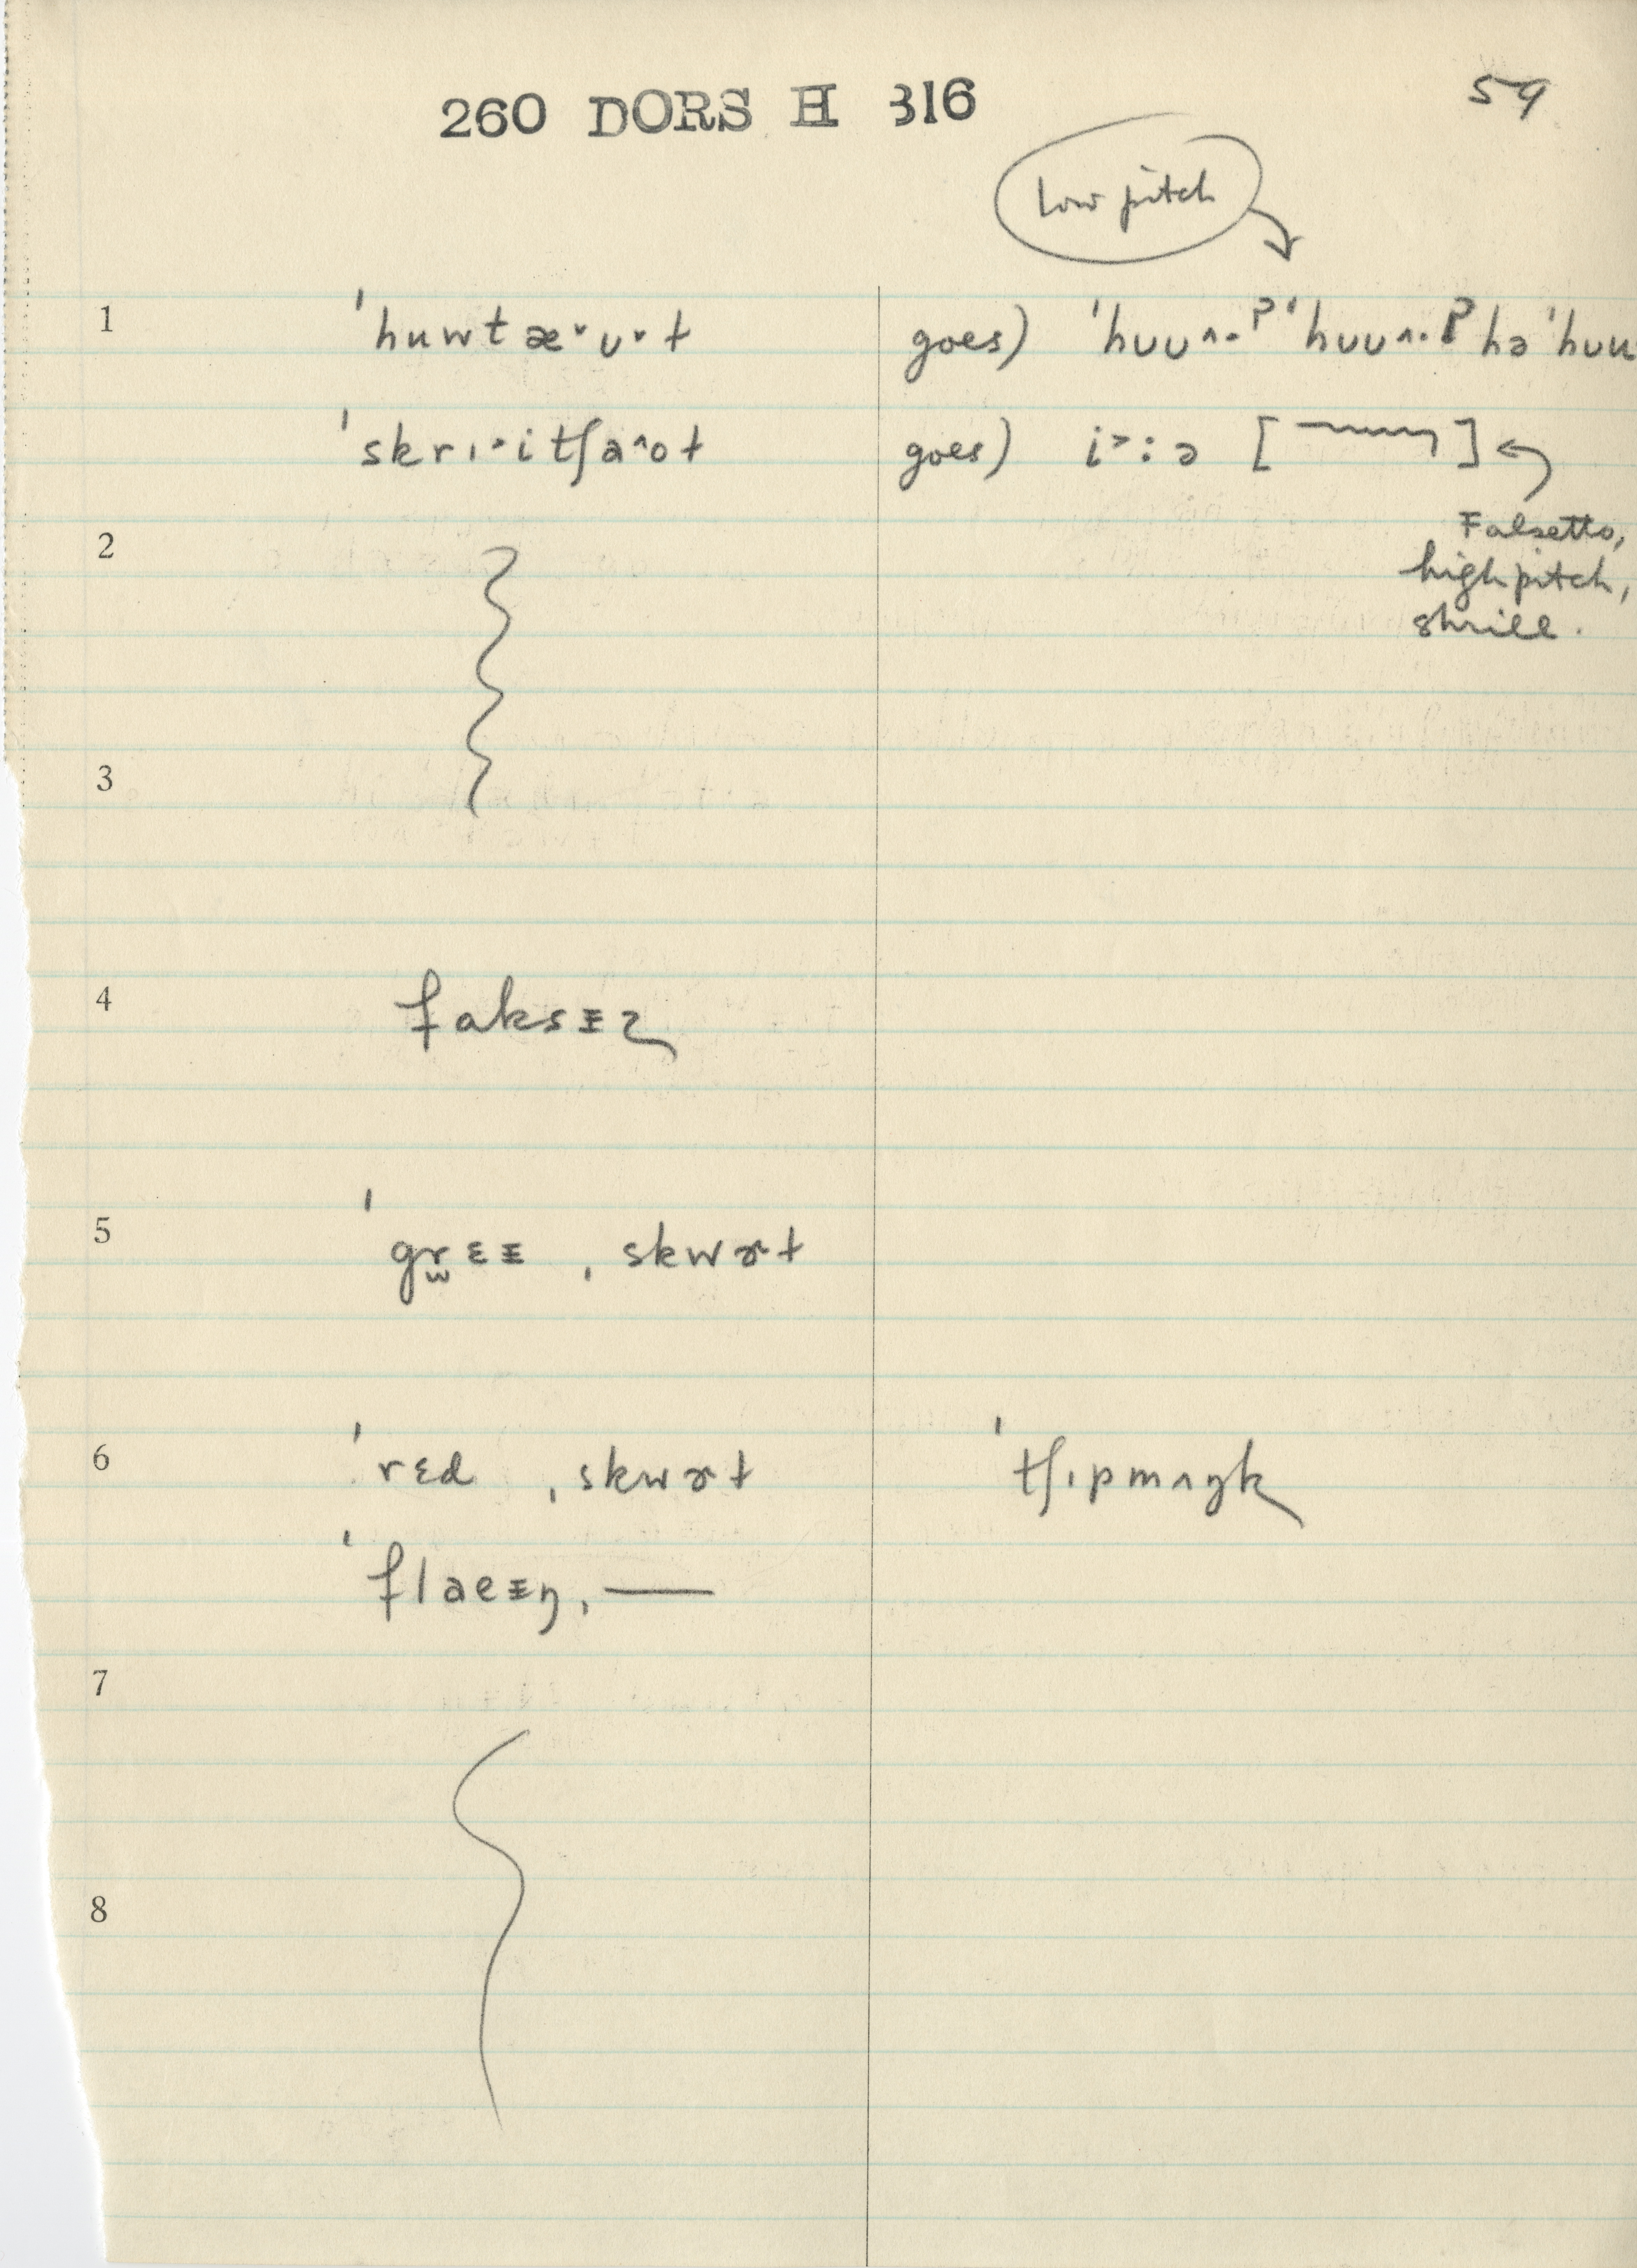 260 DORS H 316
59
Low pitch
1 ˈhuwtæ˅ʊ˅ɫ goes) ˈhʊʊ^·ʔ ˈhʊʊ^·ʔ hə ˈhʊu
ˈskrɪ·itʃa^oɫ goes) i˃:ə [ ]
Falsetto,
high pitch,
shrill.
2
3
4 faksɪz
5 ˈgrɛɪ ˌskwɚɫ
6 ˈrɛd ˌskwɚɫ ˈtʃɪpmʌŋk
ˈflaeɪŋ ˌ—
7
8